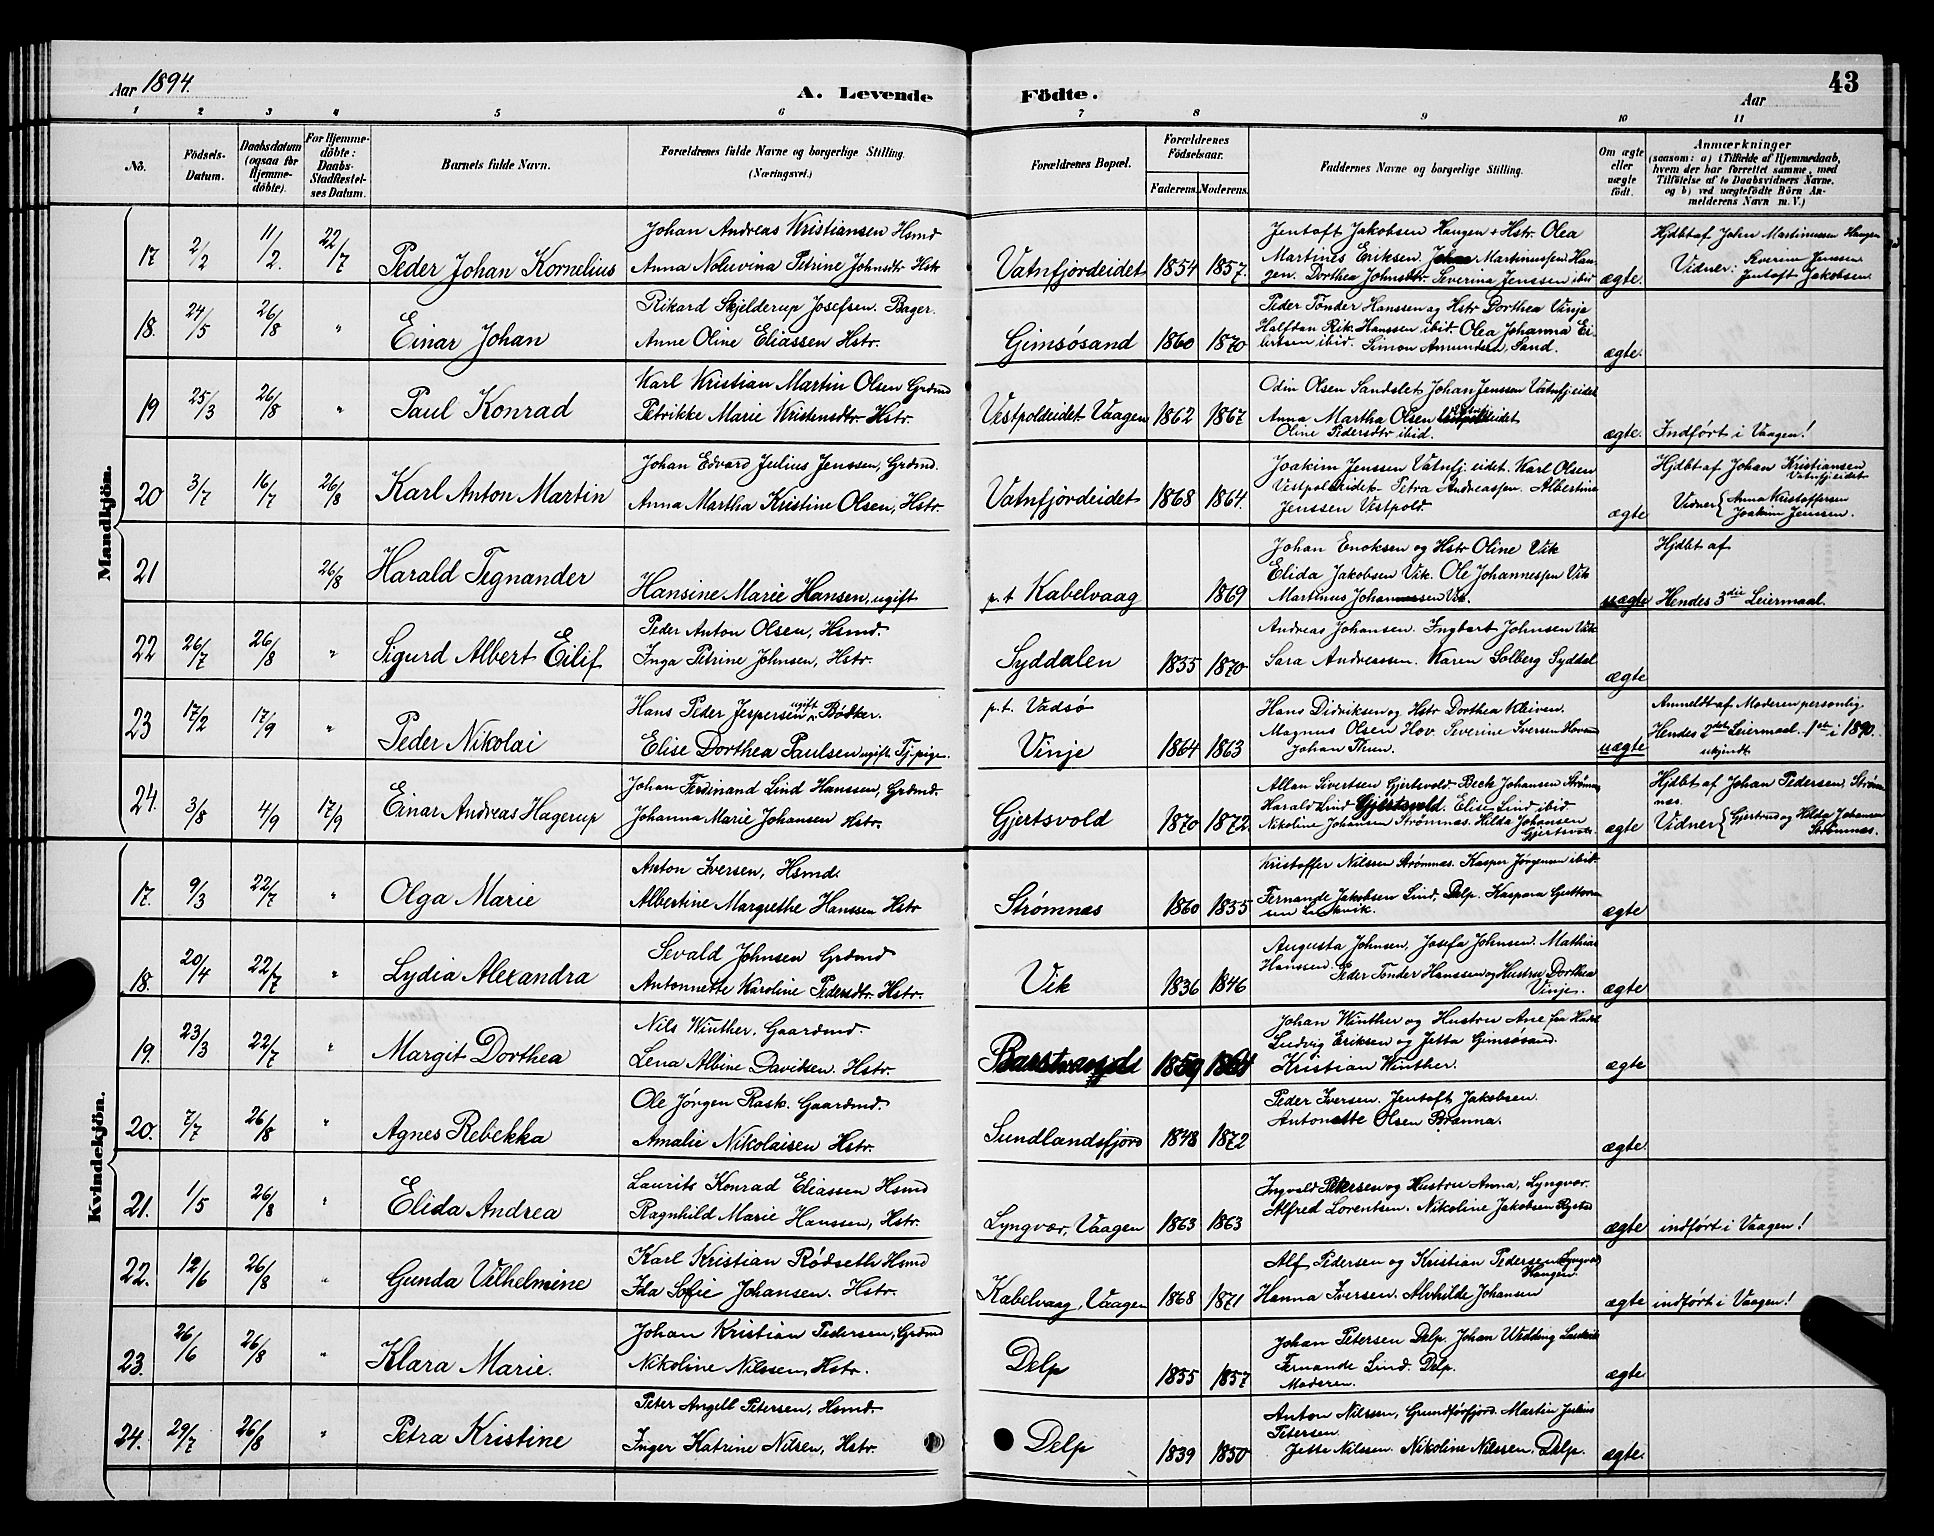 Aar 1894.
A. Levende
Födte.
Aar
43
1 2 3 4 5 6 7 8 9 10 11
No.
Födsels-Datum.
Daabsdatum (ogsaa for Hjemme-döbte).
For Hjemme-döbte: Daabs-Stadfæstel-ses Datum.
Barnets fulde Navn.
Forældrenes fulde Navne og borgerlige Stilling. (Næringsvei.)
Forældrenes Bopæl.
Forældrenes Födselsaar.
Faderens. Moderens.
Faddernes Navne og borgerlige Stilling.
Om ægte eller uægte födt.
Anmærkninger
(saasom: a) i Tilfælde af Hjemmedaab, hvem der har forrettet samme, med Tilföielse af to Daabsvidners Navne, og b) ved uægtefödte Börn An-melderens Navn m. V.)
Mandkjön.
17 2/2 11/2. 22/7 Peder Johan Kornelius
Johan Andreas Kristiansen Hsmd
Anna Noluvina Petrine Johnsdtr Hstr
Vatnfjordeidet 1854 1857.
Jentoft Jakobsen Haugen + Hstr Olea
Martines Eriksen. Martinussen Hau-
gen. Dorthea Johnsdtr. Severina Jenssen ibid
ægte.
Hjdbt af John Martinussen Haugen
Vidner: Severin Jenssen
Jentoft Jakobsen
18. 24/5 26/8 " Einar Johan
Rikard Skjelderup Josefsen. Bager.
Anne Oline Eliassen Hstr.
Gimsøsand 1860 1870
Peder Tønder Hanssen og Hstr Dorthea Vinje
Halfdan Rik. Hanssen ibid. Olea Johanna Ei-
lertsen ibid. Simon Amundsen, Sand.
ægte.
19 25/3 26/8 " Paul Konrad
Karl Kristian Martin Olsen Grdmd
Petrikke Marie Kristensdtr. Hstr.
Vestpoldeidet. Vaagen 1862 1867
Odin Olsen Sandslet Johan Jenssen Vatnfj.eidet
Anna Martha Olsen
Oline Pedersdtr ibid.
ægte.
Indført i Vaagen!
20 3/7 16/7 26/8 Karl Anton Martin
Johan Edvard Julius Jenssen, Grdmd.
Anna Martha Kristine Olsen, Hstr.
Vatnfjordeidet 1868 1864.
Joakim Jenssen Vatnfj. eidet. Karl Olsen
Vestpoldeidet Petra Andreassen. Albertine
Jenssen Vestpold.
ægte
Hjdbt af Johan Kristiansen
Vatnfjeidet
Vidner { Anna Kristoffersen
Joakim Jenssen.
21 26/8 Harald Tegnander
Hansine Marie Hansen, ugift
p. t. Kabelvaag 1869
Johan Enoksen og Hstr Oline Vik
Elida Jakobsen Vik. Ole Johannessen Vik
Martinus Johannessen Vik.
uægte
Hjdbt af
Hendes 3die Leiermaal.
22 26/7 26/8 " Sigurd Albert Eilif
Peder Anton Olsen, Hsmd.
Inga Petrine Johnsen, Hstr.
Syddalen 1835 1870
Andreas Johansen. Ingbert Johnsen Vik
Sara Andreassen. Karen Solberg Syddal
ægte
23 17/2 17/9 " Peder Nikolai
Hans Peder Jespersen ugift Bødker.
Elise Dorthea Paulsen ugift Tj. pige.
p.t. Vadsø
Vinje 1864 1863
Hans Didriksen og Hstr Dorthea Kleiven.
Magnus Olsen Hov. Severine Iversen Hov
Johan Thuen.
uægte
Anmeldt af Moderen personlig
Hendes 2det Leiermaal. 1ste i 1890.
24. 3/8 4/9 17/9 Einar Andreas Hagerup
Johan Ferdinand Lind Hanssen, Grdmd.
Johanna Marie Johansen Hstr.
Gjertsvold 1870 1872.
Allan Sivertsen Gjertsvold. Beck Johansen Strømnas
Harald Lind Gjertsvold. Elise Lind ibid
Nikoline Johansen Strømnas. Hilda Johansen
Gjertsvold
ægte
Hjdbt af Johan Pedersen, Strøm-
nas.
Vidner { Gjertrud og Hilda Johansen
Strømnas.
Kvindekjön.
17. 9/3 22/7 " Olga Marie
Anton Iversen, Hsmd.
Albertine Margrethe Hanssen Hstr
Strømnas 1860 1855
Kristoffer Nilssen Strømnas. Kasper Jørgensen ibid.
Fernande Jakobsen Lind, Delp. Kaspara Guttorm-
sen
ægte
18. 20/4 22/7 " Lydia Alexandra
Sevald Johnsen Grdmd
Antonnette Karoline Pedersdtr. Hstr.
Vik 1836 1846
Augusta Johnsen, Josefa Johnsen. Mathias
Hanssen. Peder Tønder Hanssen og Hustru Dorthea
Vinje.
ægte
19. 23/3 22/7 " Margit Dorthea
Nils Winther. Gaardmd.
Lena Albine Davidsen. Hstr.
1859
Johan Winther og Hustru Ane fra Hadsel
Ludvig Eriksen og Jetta Gimsøsand.
Kristian Winther.
ægte
20. 7/7 26/8 " Agnes Rebekka
Ole Jørgen Rask. Gaardmd.
Amalie Nikolaisen Hstr.
Sundlandsfjord 1848 1872
Peder Iversen. Jentoft Jakobsen.
Antonette Olsen Brenna.
ægte
21. 1/5 26/8 " Elida Andrea
Laurits Konrad Eliassen Hsmd
Ragnhild Marie Hanssen, Hstr.
Lyngvær, Vaagen 1863 1863
Ingvald Petersen og Hustru Anna, Lyngvær.
Alfred Lorentsen. Nikoline Jakobsen Rystad
ægte
indført i Vaagen!
22. 12/6 26/8 " Gunda Vilhelmine
Karl Kristian Rødseth Hsmd
Ida Sofie Johansen. Hstr.
Kabelvaag, Vaagen 1868 1871
Alf Pedersen og Kristian Pedersen Lyngvær
Haugen.
Hanna Iversen. Alvhilde Johansen
ægte
indført i Vaagen!
23. 26/6 26/8 " Klara Marie.
Johan Kristian Pedersen, Grdmd
Nikoline Nilssen, Hstr.
Delp 1855 1857
Johan Petersen Delp. Johan Widding
Fernande Lind. Delp.
Moderen.
ægte
24. 29/7 26/8 " Petra Kristine
Peter Angell Petersen, Hsmd.
Inger Katrine Nilsen, Hstr.
Delp 1839 1850
Anton Nilssen, Grundførfjord. Martin Julius
Petersen.
Jette Nilssen. Nikoline Nilssen. Delp.
ægte.